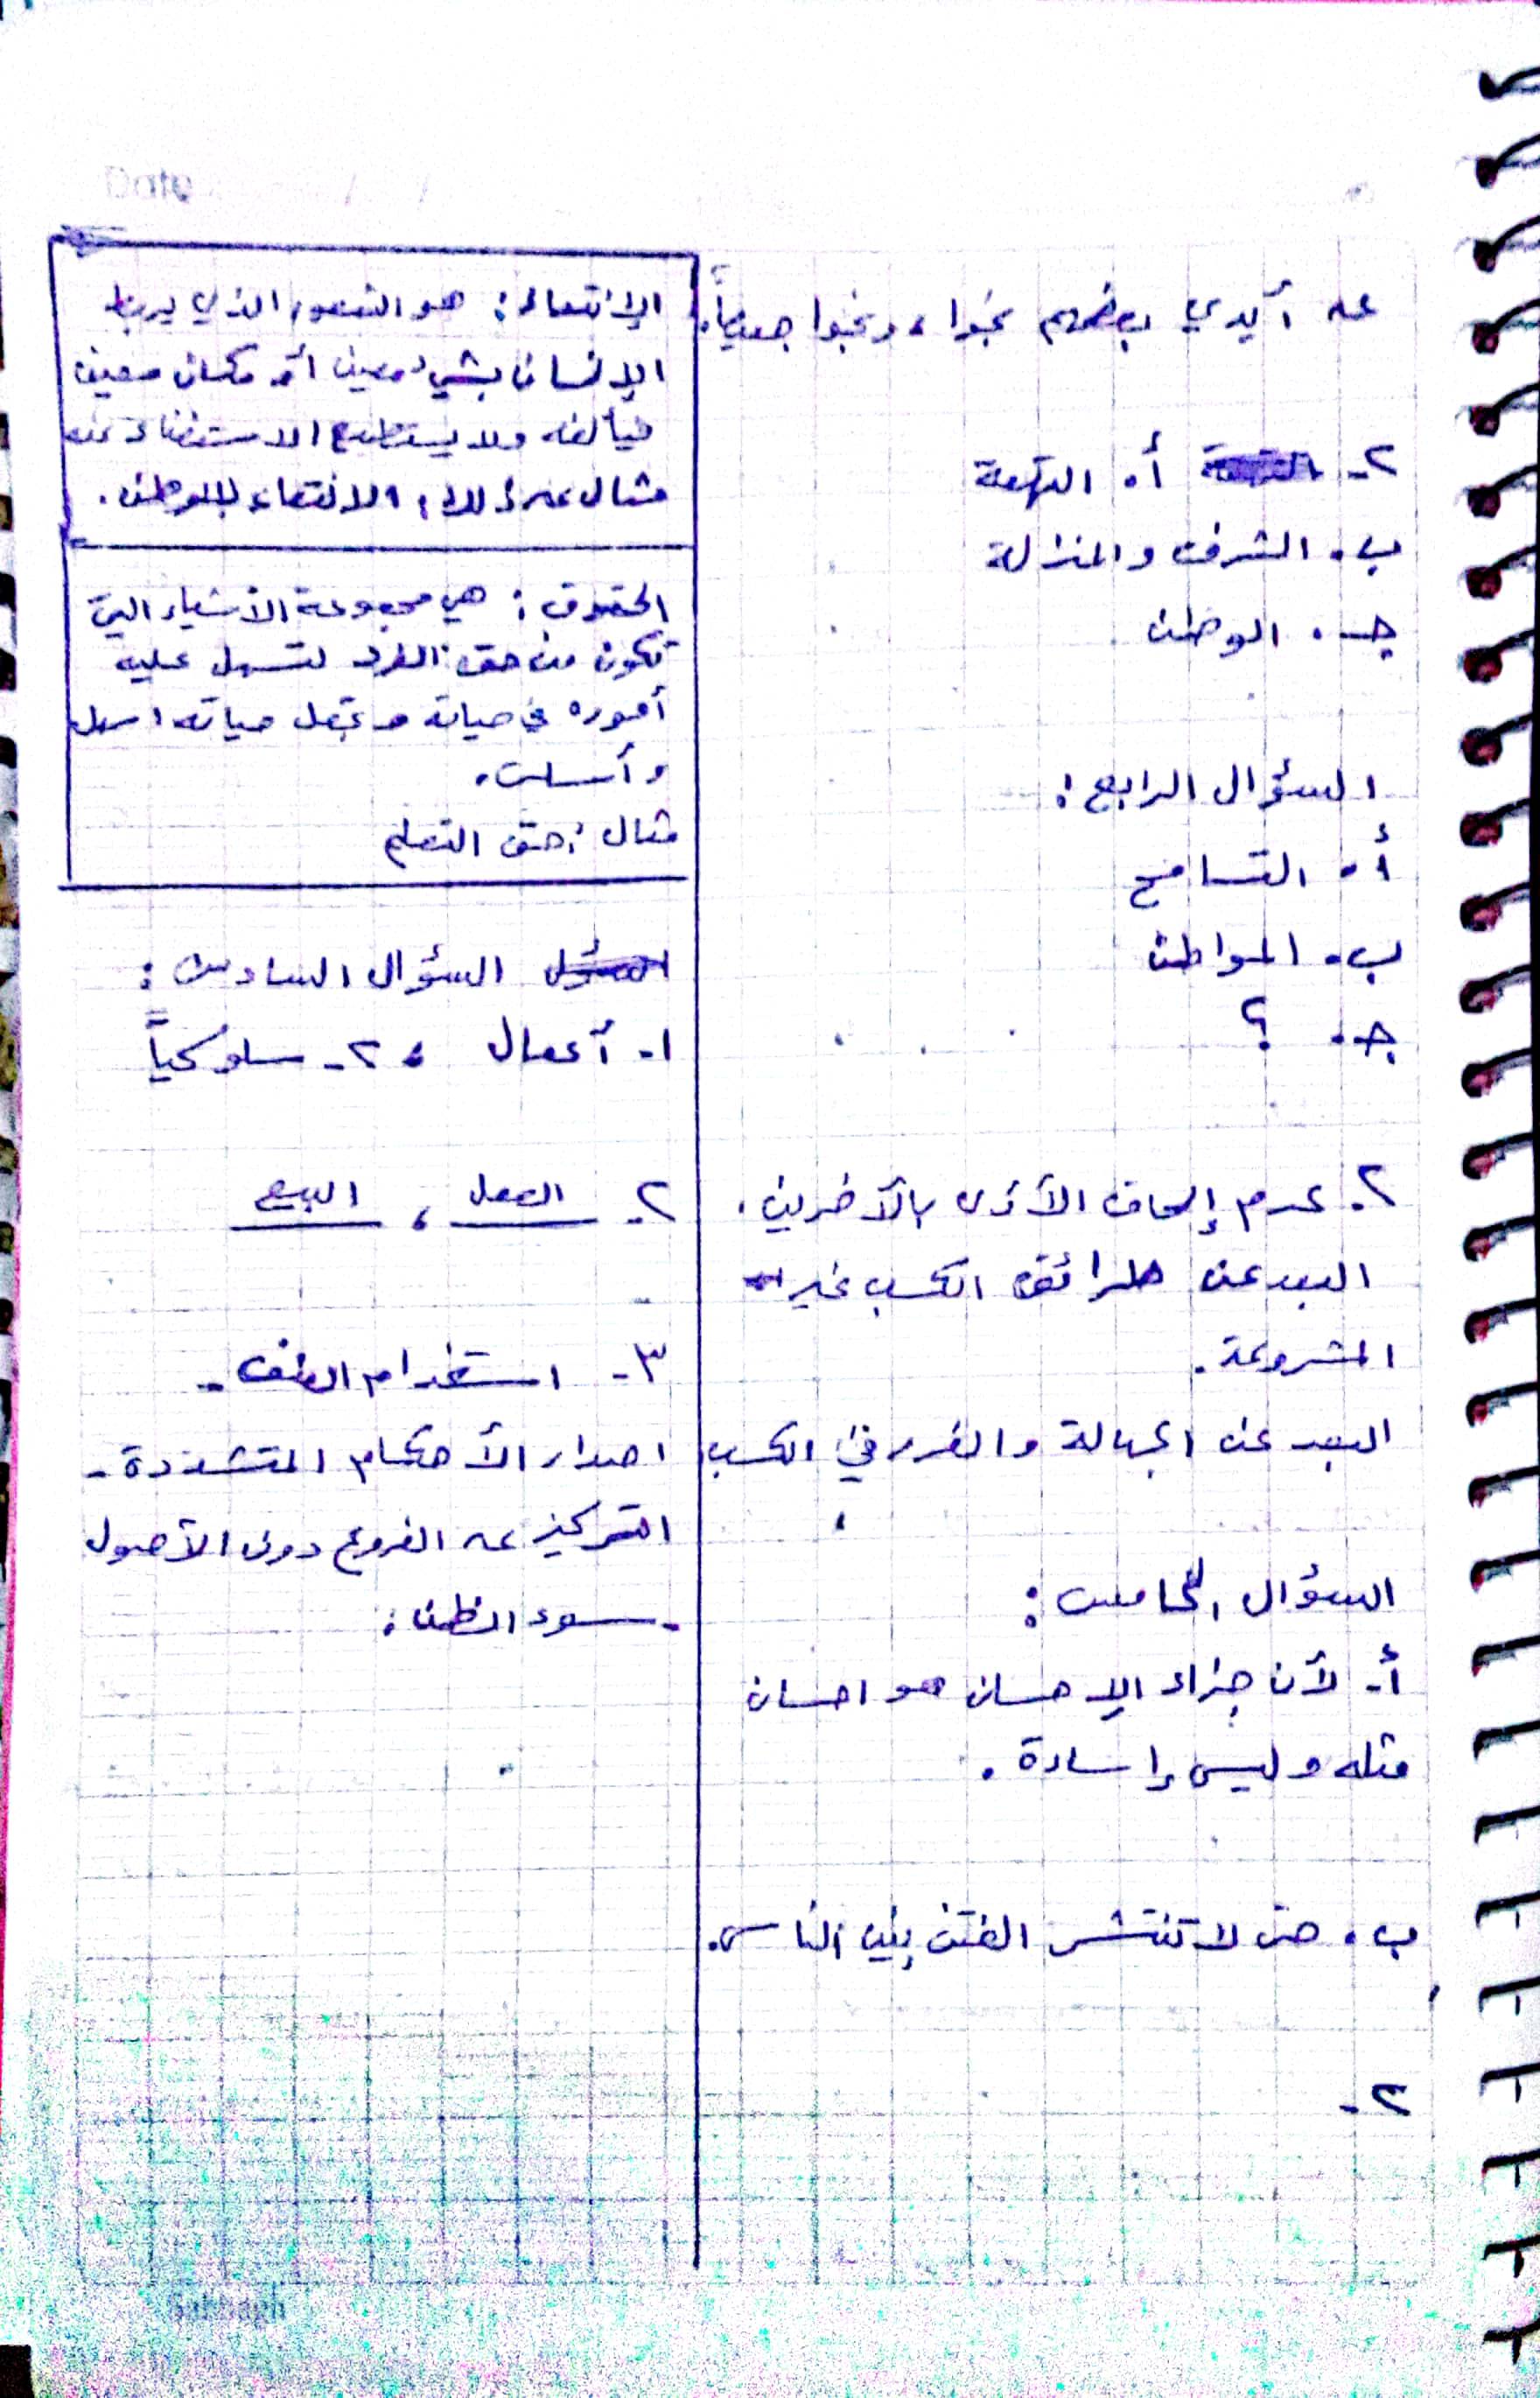 Date / /
عـ أيدي بعضهم نجوا، ونجوا جميعاً.
٢- أ. التهمة
ب. الشرف والمنزلة
جـ. الوطن
السؤال الرابع:
أ. التسامح
ب. المواطن
جـ. ؟
٢. عدم إلحاق الأذى بالآخرين.
البعد عن طرائق الكسب غير
المشروعة.
البعد عن الجهالة والغرر في الكسب
السؤال الخامس:
أ- لأن جزاء الإحسان هو احسان
مثله وليس إساءة.
ب. حتى لا تنتشر الفتن بين الناس.
٢-
الإنتماء: هو الشعور الذي يربط
الإنسان بشيء معين أو مكان معين
فيألفه ولا يستطيع الاستغناء عنه
مثال عـ ذلك: الانتماء للوطن.
الحقوق: هي مجموعة الأشياء التي
تكون من حق الفرد لتسهل عليه
أموره في حياته وتجعل حياته اسهل
وأسلس.
مثال: حق التعلم
السؤال السادس:
١- أعمال ، ٢- سلوكياً
٢- العمل ، البيع
٣- استخدام العنف -
اصدار الأحكام المتشددة -
التركيز عـ الفروع دون الأصول
- سوء الظن.
Sabbagh